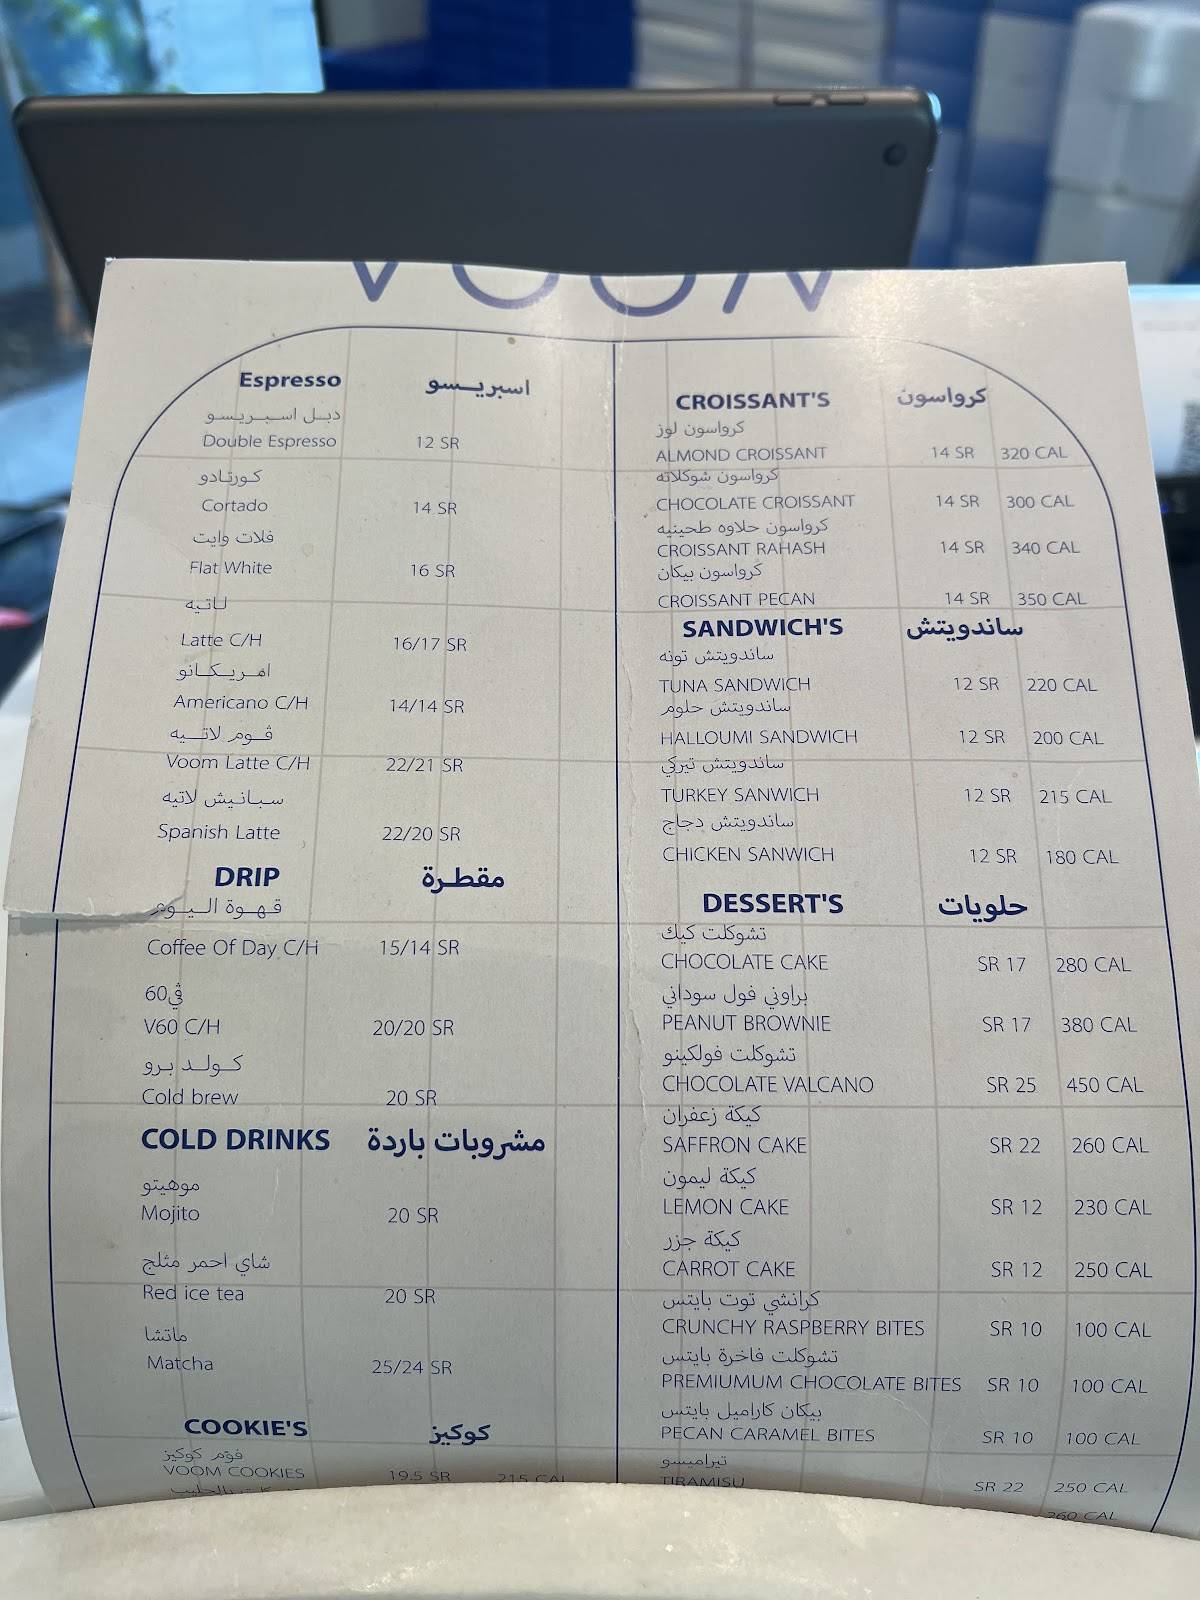 VOOM
Espresso اسبريسو
دبل اسبريسو
Double Espresso 12 SR
كورتادو
Cortado 14 SR
فلات وايت
Flat White 16 SR
لاتيه
Latte C/H 16/17 SR
امريكانو
Americano C/H 14/14 SR
ڤوم لاتيه
Voom Latte C/H 22/21 SR
سبانيش لاتيه
Spanish Latte 22/20 SR
DRIP مقطرة
قهوة اليوم
Coffee Of Day C/H 15/14 SR
ڤي60
V60 C/H 20/20 SR
كولد برو
Cold brew 20 SR
COLD DRINKS مشروبات باردة
موهيتو
Mojito 20 SR
شاي احمر مثلج
Red ice tea 20 SR
ماتشا
Matcha 25/24 SR
COOKIE'S كوكيز
ڤوم كوكيز
VOOM COOKIES 19.5 SR 215 CAL
CROISSANT'S كرواسون
كرواسون لوز
ALMOND CROISSANT 14 SR 320 CAL
كرواسون شوكلاته
CHOCOLATE CROISSANT 14 SR 300 CAL
كرواسون حلاوه طحينيه
CROISSANT RAHASH 14 SR 340 CAL
كرواسون بيكان
CROISSANT PECAN 14 SR 350 CAL
SANDWICH'S ساندويتش
ساندويتش تونه
TUNA SANDWICH 12 SR 220 CAL
ساندويتش حلوم
HALLOUMI SANDWICH 12 SR 200 CAL
ساندويتش تيركي
TURKEY SANWICH 12 SR 215 CAL
ساندويتش دجاج
CHICKEN SANWICH 12 SR 180 CAL
DESSERT'S حلويات
تشوكلت كيك
CHOCOLATE CAKE SR 17 280 CAL
براوني فول سوداني
PEANUT BROWNIE SR 17 380 CAL
تشوكلت فولكينو
CHOCOLATE VALCANO SR 25 450 CAL
كيكة زعفران
SAFFRON CAKE SR 22 260 CAL
كيكة ليمون
LEMON CAKE SR 12 230 CAL
كيكة جزر
CARROT CAKE SR 12 250 CAL
كرانشي توت بايتس
CRUNCHY RASPBERRY BITES SR 10 100 CAL
تشوكلت فاخرة بايتس
PREMIUMUM CHOCOLATE BITES SR 10 100 CAL
بيكان كاراميل بايتس
PECAN CARAMEL BITES SR 10 100 CAL
تيراميسو
TIRAMISU SR 22 250 CAL
260 CAL